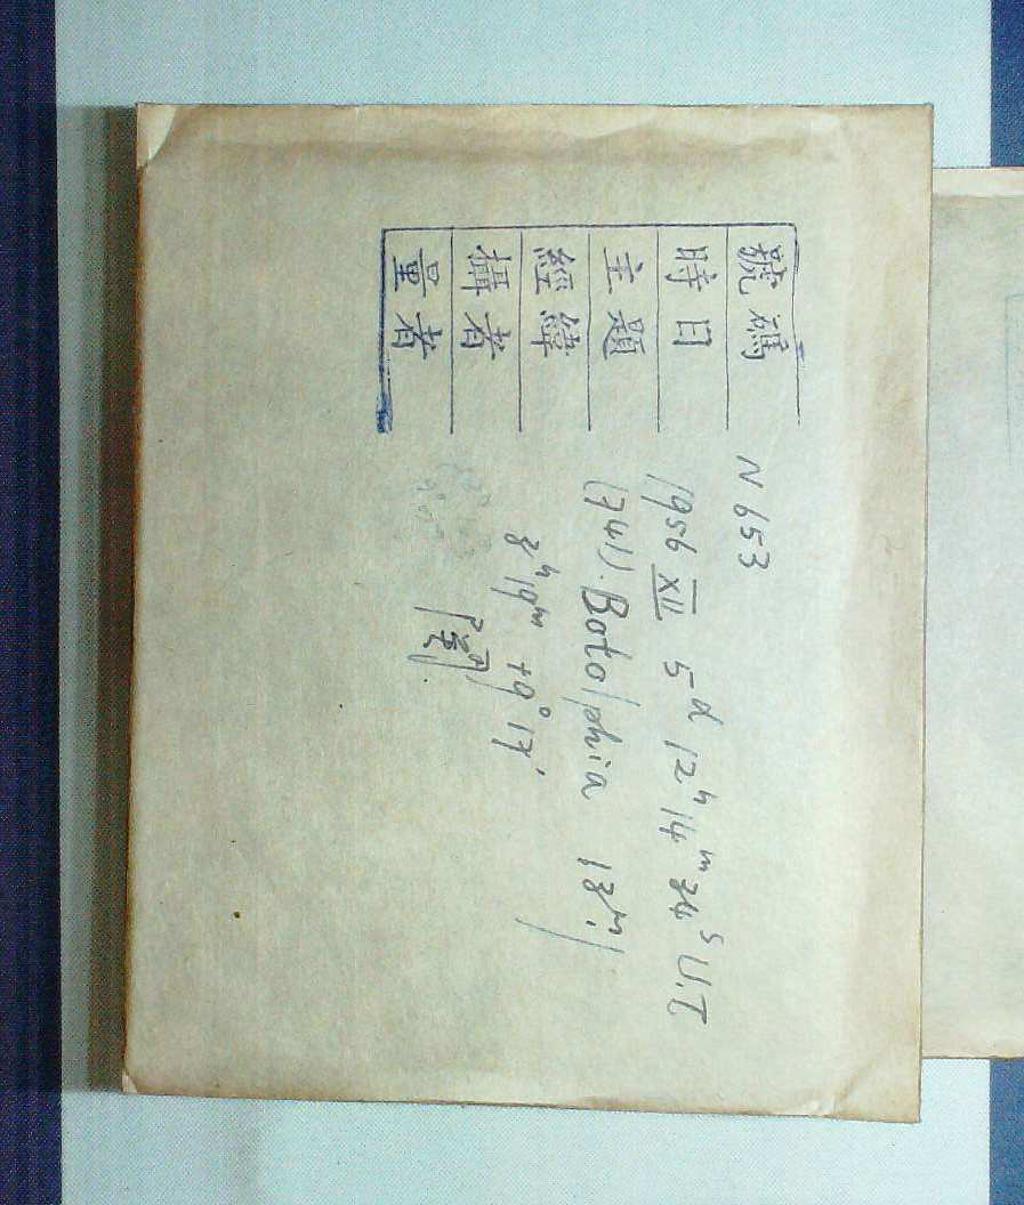 號碼 N 653
時日 1956 XII 5ᵈ 12ʰ 14ᵐ 34ˢ U.T
主題 (741). Botolphia 13ᵐ.)
經緯 3ʰ 19ᵐ +9° 17'
攝者
量者